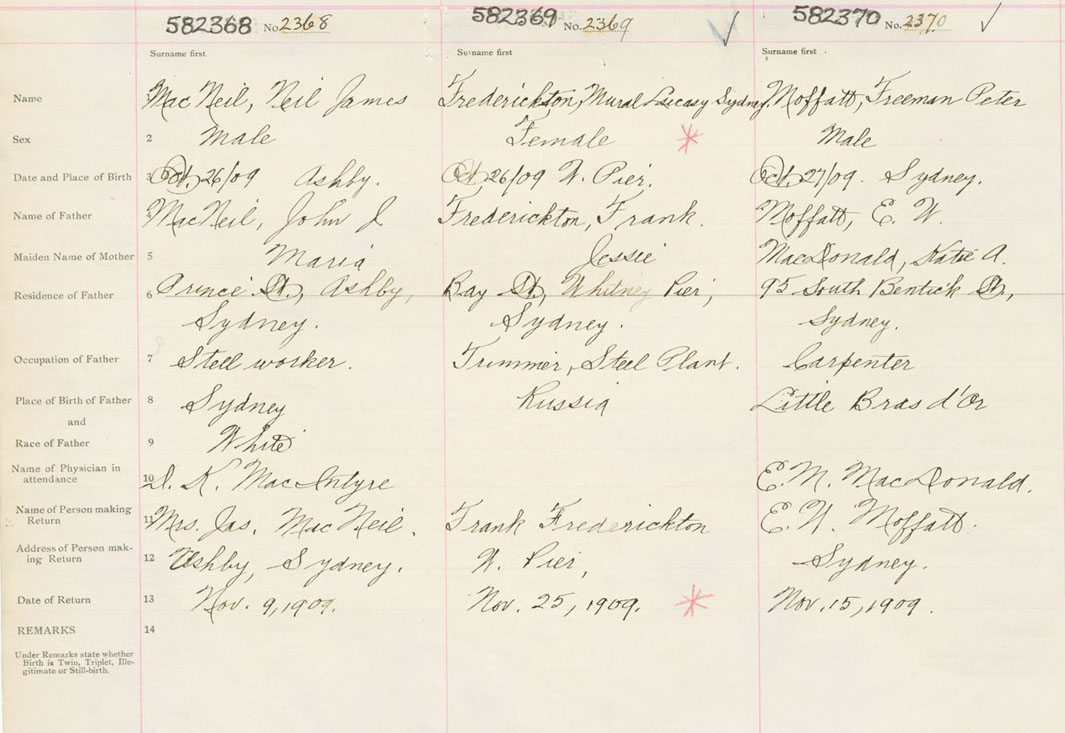 582368 No. 2368 582369 No. 2369 582370 No. 2370
Surname first Surname first Surname first
Name 1 MacNeil, Neil James Frederickton, Sydney. Moffatt, Freeman Peter
Sex 2 Male Female Male
Date and Place of Birth 3 Oct. 26/09 Ashby. Oct 26/09 W. Pier. Oct. 27/09. Sydney.
Name of Father 4 MacNeil, John J Frederickton, Frank. Moffatt, E. W.
Maiden Name of Mother 5 Maria Jessie MacDonald, Katie A.
Residence of Father 6 Prince St., Ashby, Bay St, Whitney Pier, 95 South Bentick St,
Sydney. Sydney. Sydney.
Occupation of Father 7 Steel worker. Trimmer, Steel Plant. Carpenter
Place of Birth of Father 8 Sydney Russia Little Bras d'Or
and
Race of Father 9 White
Name of Physician in
attendance 10 D. K. MacIntyre E. M. MacDonald.
Name of Person making
Return 11 Mrs. Jas. MacNeil. Frank Frederickton E. W. Moffatt.
Address of Person mak-
ing Return 12 Ashby, Sydney. W. Pier, Sydney.
Date of Return 13 Nov. 9, 1909. Nov. 25, 1909. Nov. 15, 1909.
REMARKS 14
Under Remarks state whether
Birth is Twin, Triplet, Ille-
gitimate or Still-birth.